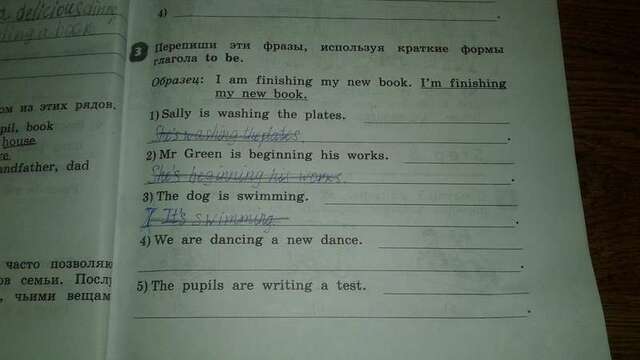 ом из этих рядов.
pil, book
house
re
andfather, dad
часто позволяю
ов семьи. Посл
, чьими вещам
4)
3 Перепиши эти фразы, используя краткие формы
глагола to be.
Образец: I am finishing my new book. I'm finishing
my new book.
1) Sally is washing the plates.
She's washing the plates
2) Mr Green is beginning his works.
She's beginning his works
3) The dog is swimming.
It's swimming
4) We are dancing a new dance.
5) The pupils are writing a test.